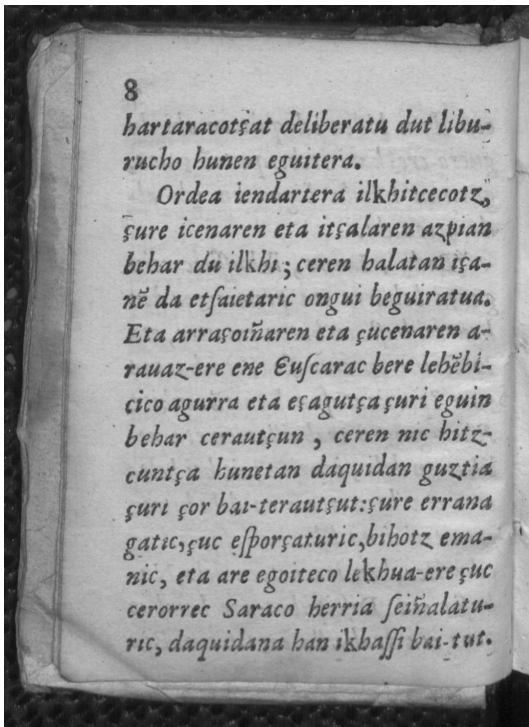 8
hartaracotçat deliberatu dut libu-
rucho hunen eguitera.
Ordea iendartera ilkhitcecotz,
çure icenaren eta itçalaren azpian
behar du ilkhi; ceren halatan iça-
nẽ da etſaietaric ongui beguiratua.
Eta arraçoin̈aren eta çucenaren a-
rauaz-ere ene Euſcarac bere lehẽbi-
cico agurra eta eçagutça çuri eguin
behar cerautçun, ceren nic hitz-
cuntça hunetan daquidan guztia
çuri çor bai-terautçut: çure errana
gatic, çuc eſporçaturic, bihotz ema-
nic, eta are egoiteco lekhua-ere çuc
cerorrec Saraco herria ſein̈alatu-
ric, daquidana han ikhaſſi bai-tut.